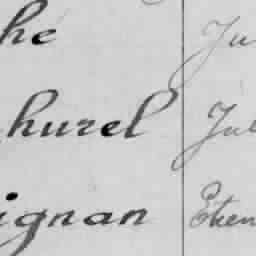 hé Ju
hurel Jul
ignan Etien